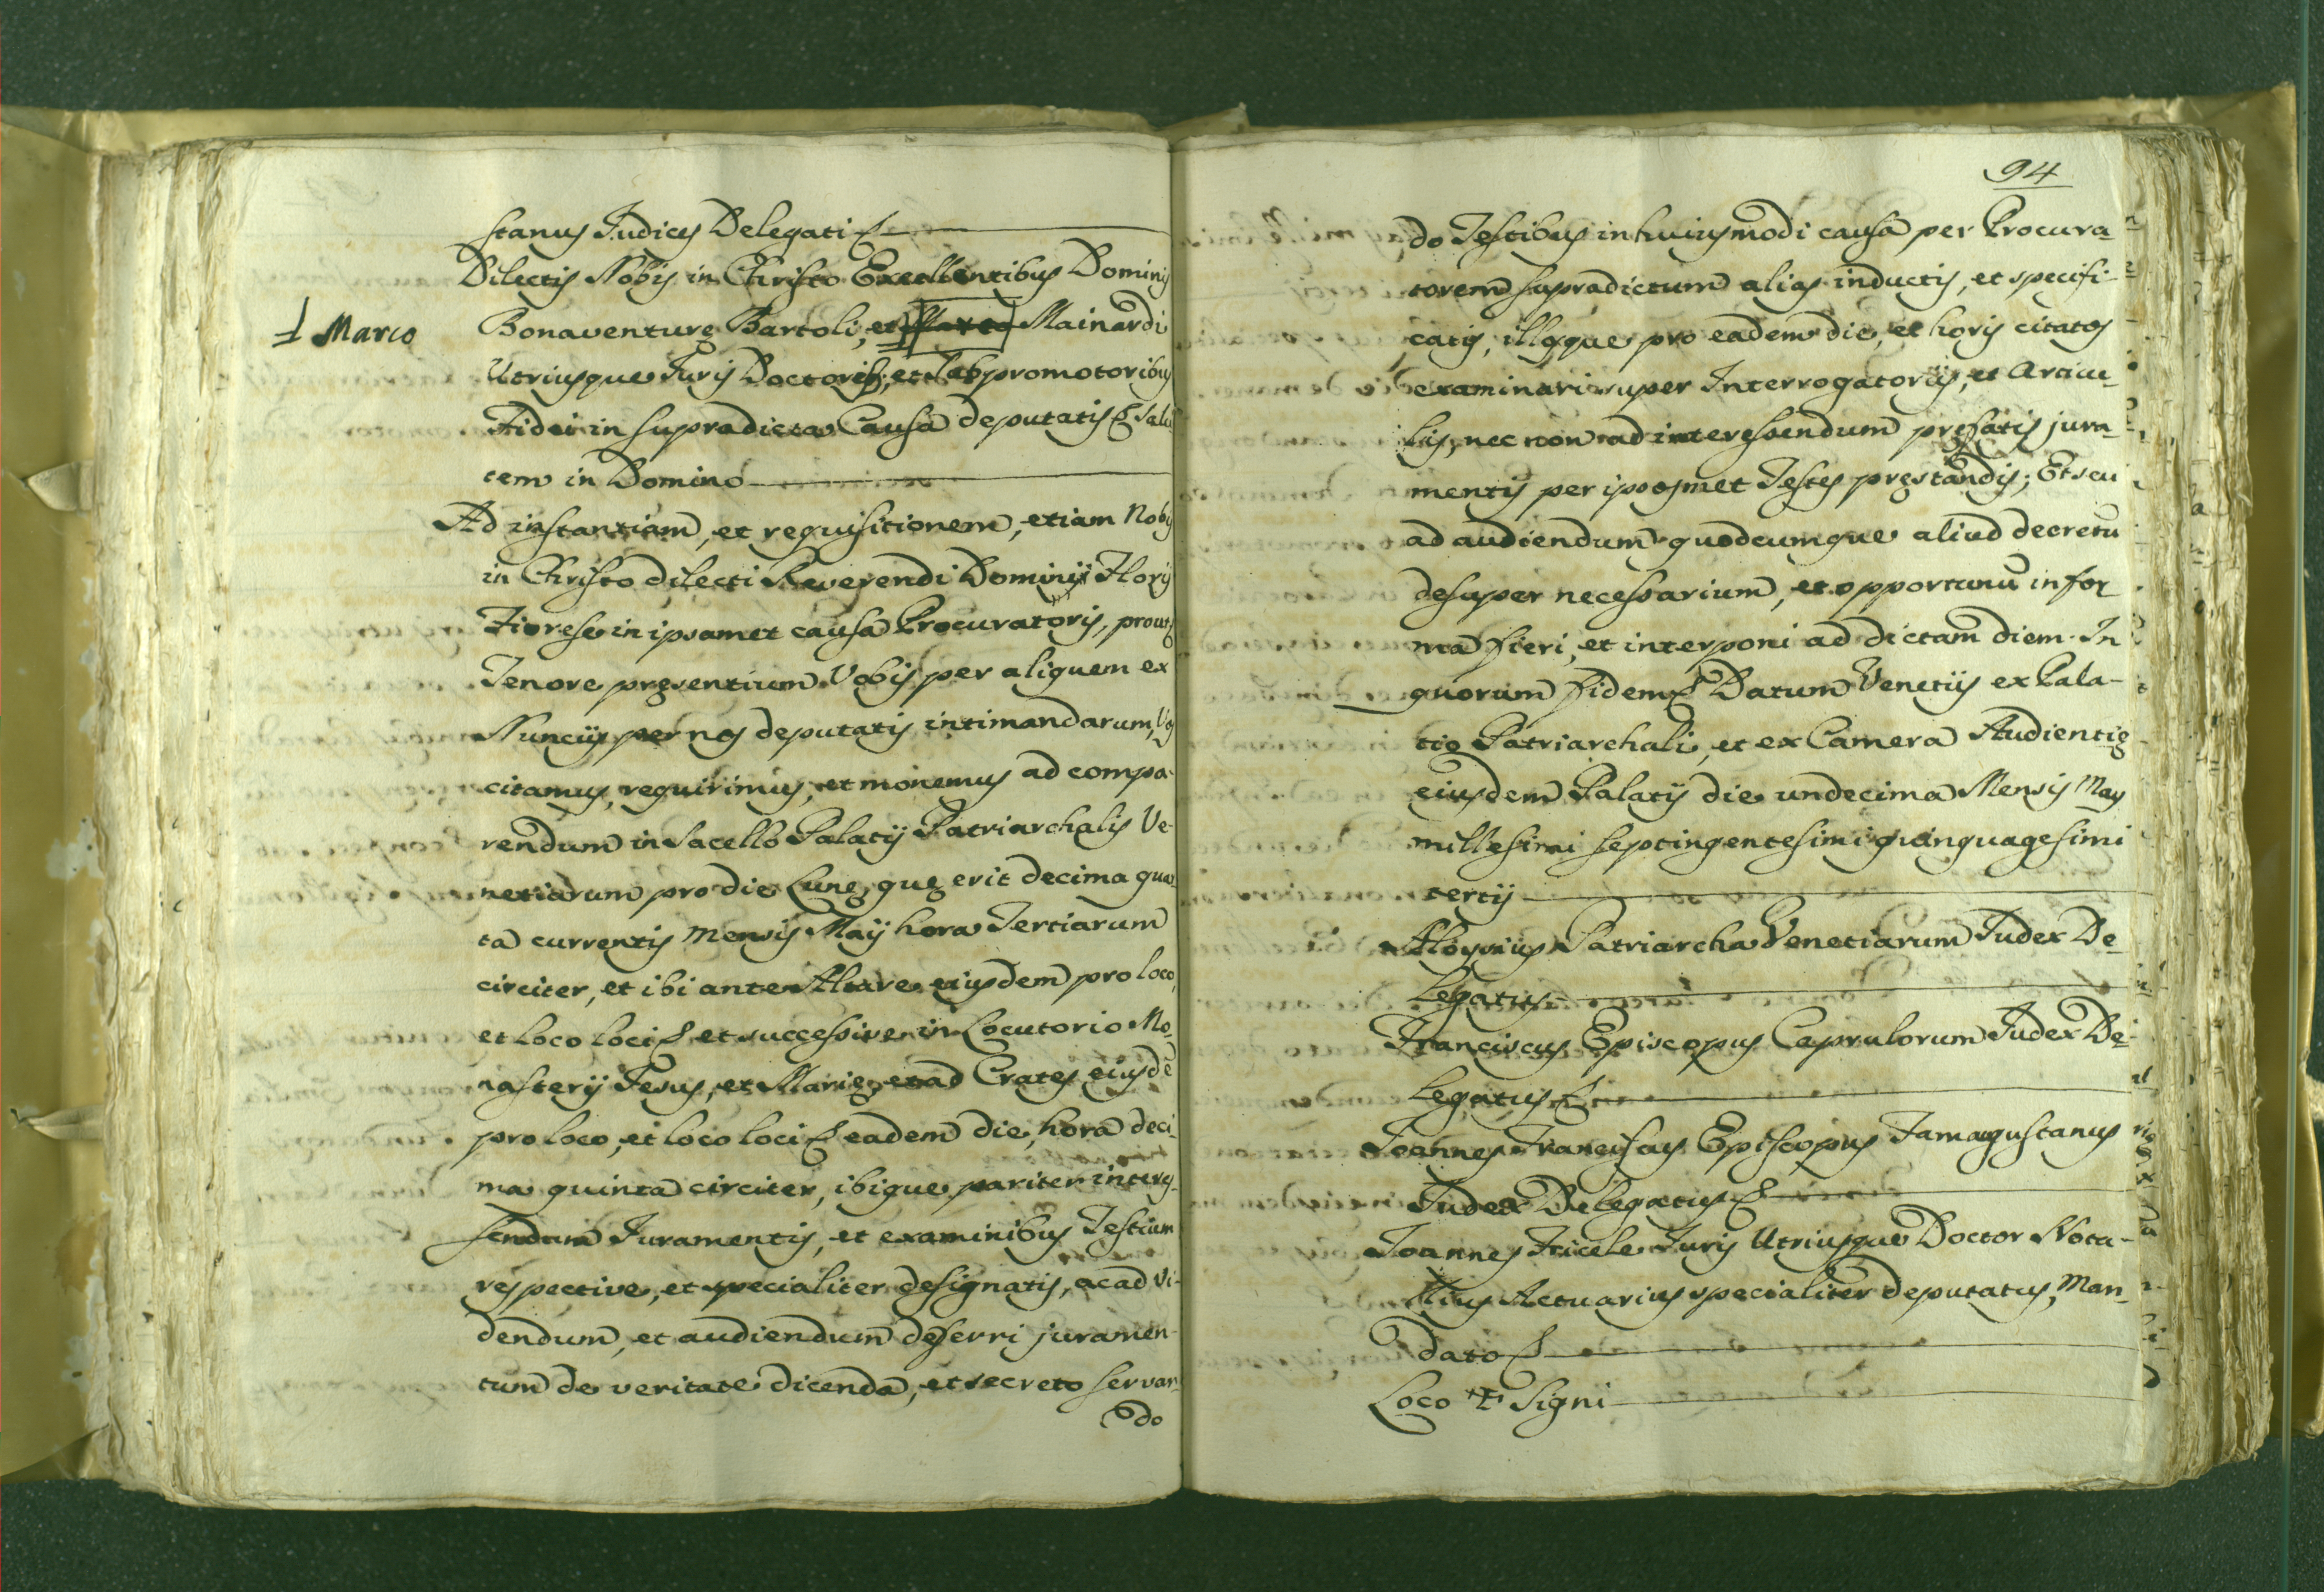 stanus Judices Delegati &c
Dilectis Nobis in Christo Excellentibus Dominis
Bonaventuræ Bartoli, et Marco Mainardi
Marco
Utriusque Juris Doctorib; et Subpromotoribus
Fidei in supradicta Causa deputatis &c Salu
tem in Domino
Ad instantiam, et requisitionem, etiam Nobis
in Christo dilecti Reverendi Domini Floris
Fiorese in ipsamet causa Procuratoris, prout
Tenore presentium Vobis per aliquem ex
Nuncijs per nos deputatis intimandarum, Vos
citamus, requirimus, et monemus ad compa-
rendum in Sacello Palatij Patriarchalis Ve-
netiarum pro die Lunę, quę erit decima quar
ta currentis Mensis Maij hora Tertiarum
circiter, et ibi ante Altare eiusdem pro loco,
et loco loci &c et successive in Locutorio Mo-
nasterij Jesus, et Marię, et ad Crates eiusdē
pro loco, et loco loci &c eadem die, hora deci-
ma quinta circiter, ibique pariter interes-
sendum Juramentis, et examinibus Testium
respective, et specialiter designatis, ac ad vi-
dendum, et audiendum deferri juramen-
tum de veritate dicenda, et secreto servan-
do
94
do Testibus in huiusmodi causa per Procura-
torem supradictum alias inductis, et specifi-
catis, illosque pro eadem die, et horis citatos
examinari super Interrogatorijs, et Articu-
lis, nec non ad interessendum pręfatis jura-
mentis per ipsosmet Testes pręstandis; Et seu
ad audiendum quodcumque aliud decretū
desuper necessarium, et opportunū in for
ma fieri, et interponi ad dictam diem. In
quorum fidem &c Datum Venetijs ex Pala-
tio Patriarchali, et ex Camera Audientię
eiusdem Palatij die undecima Mensis Maij
millesimi septingentesimi quinquagesimi
tertij
Aloysius Patriarcha Venetiarum Judex De-
legatus
Franciscus Episcopus Caprulorum Judex De-
legatus &c
Joannes Franciscus Episcopus Famagustanus
Judex Delegatus &c
Joannes Fricele Juris Utriusque Doctor Nota-
rius Actuarius specialiter deputatus, Man-
dato &c
Loco ✝ Signi